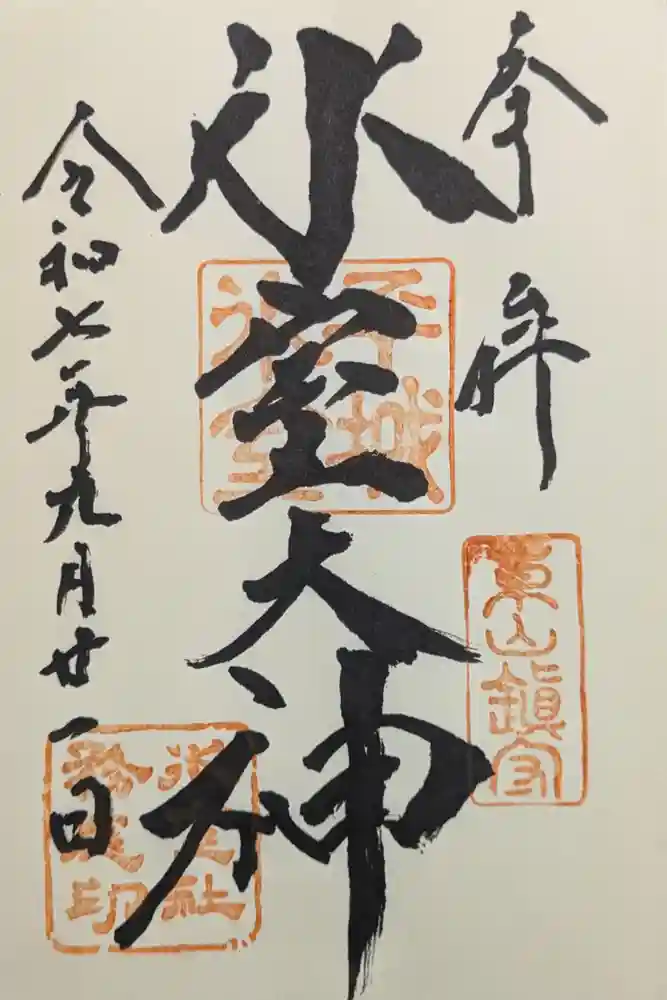 奉拝
東山鎮守
氷室大神
平城
氷室
令和七年九月廿一日
氷室社
務之印